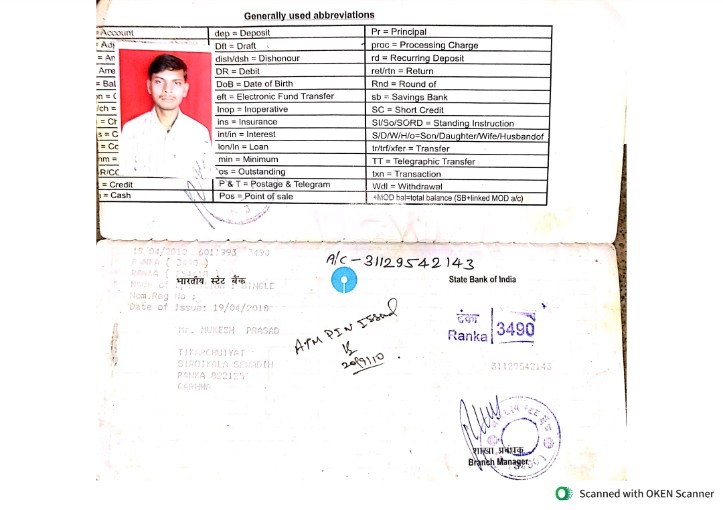 Generally used abbreviations
Account
dep = Deposit
Pr = Principal
= Adj
Dft = Draft
proc = Processing Charge
= Am
dish/dsh = Dishonour
rd = Recurring Deposit
Arre
DR = Debit
ret/rtn = Return
= Bal
DoB = Date of Birth
Rnd = Round of
eft = Electronic Fund Transfer
sb = Savings Bank
/ch =
Inop = Inoperative
SC = Short Credit
= Ch
ins = Insurance
SI/So/SORD = Standing Instruction
int/in = Interest
S/D/W/H/o=Son/Daughter/Wife/Husbandof
= Co
lon/ln = Loan
tr/trf/xfer = Transfer
min = Minimum
TT = Telegraphic Transfer
R/CC
os = Outstanding
txn = Transaction
= Credit
P & T = Postage & Telegram
Wdl = Withdrawal
= Cash
Pos = Point of sale
+MOD bal=total balance (SB+linked MOD a/c)
3
19/04/2010 6011993 7490
A/C - 31129542143
RANKA
भारतीय स्टेट बैंक
SINGLE
State Bank of India
Nom.Reg No :
Date of Issue: 19/04/2010
Mr. MUKESH PRASAD
ATM PIN Issued
टंका
Ranka 3490
RANKA 822125
31129542143
GARHWA
शाखा प्रबंधक
Branch Manager
Scanned with OKEN Scanner